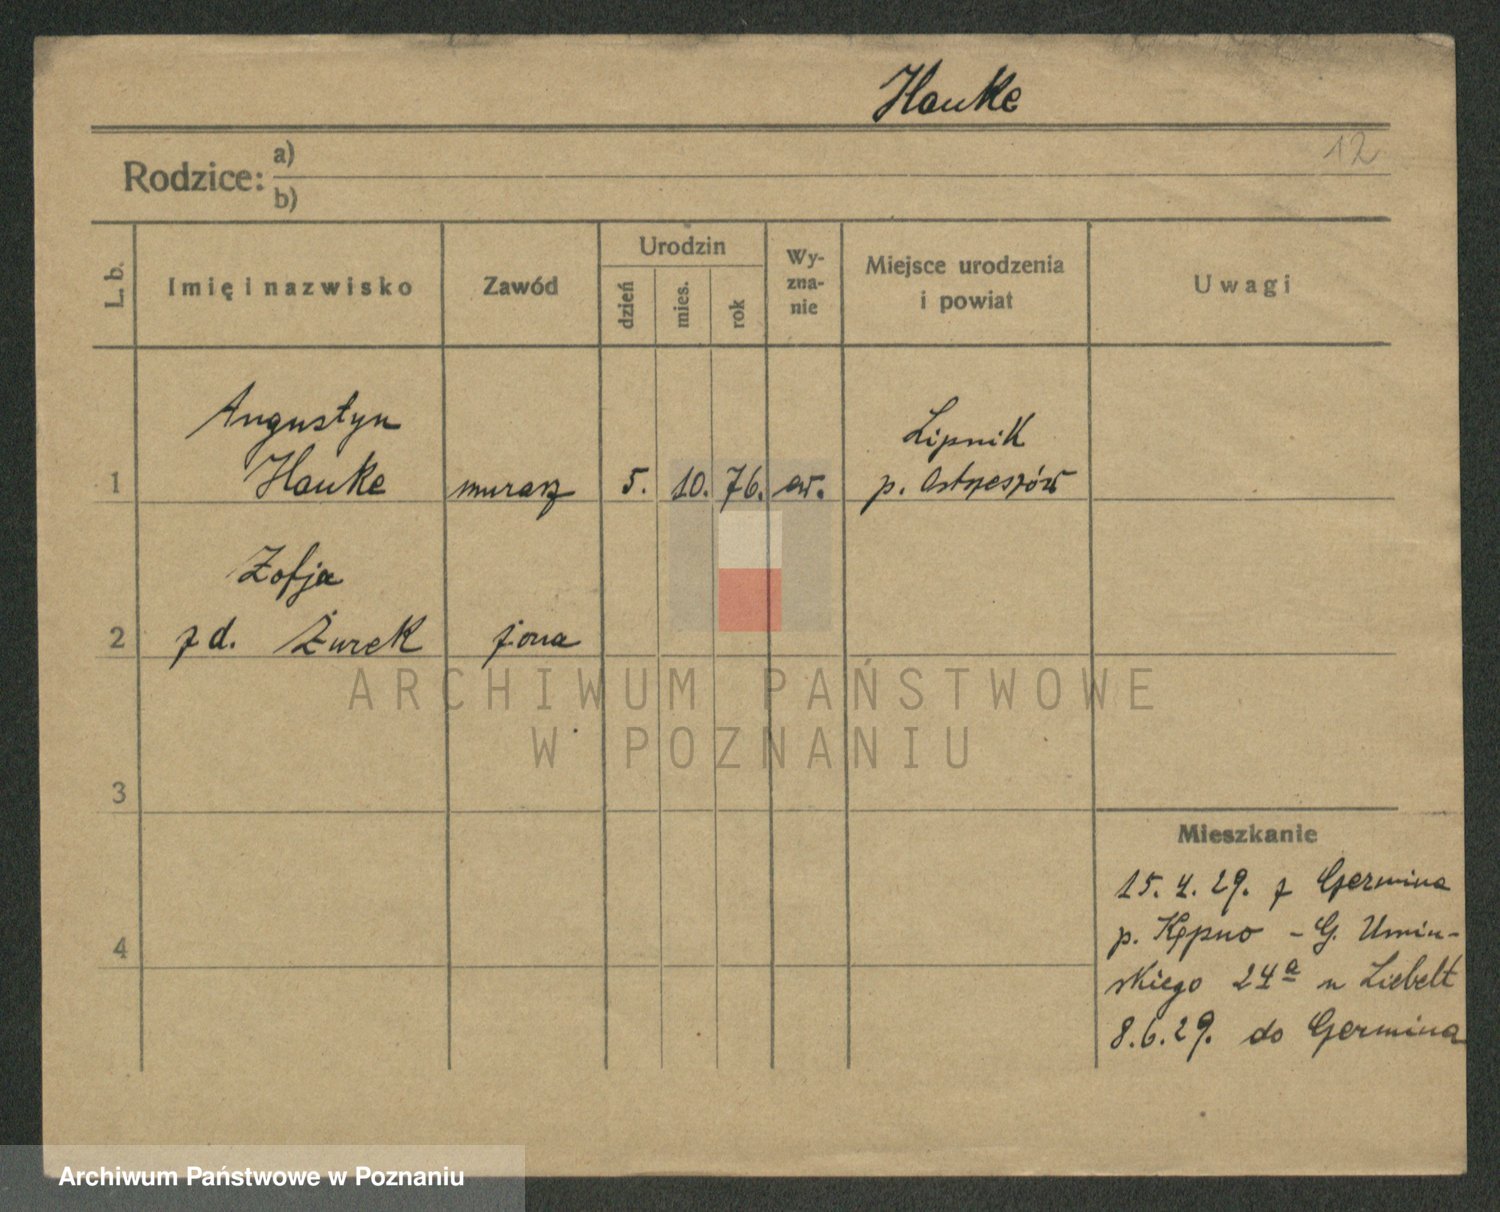 Hauke
12
Rodzice: a)
b)
L. b.
Imię i nazwisko
Zawód
Urodzin
dzień
mies.
rok
Wy-
zna-
nie
Miejsce urodzenia
i powiat
Uwagi
Augustyn
Lipnik
1 Hauke murarz 5. 10. 76. ew. p. Ostrzeszów
Zofja
2 z d. Żurek żona
ARCHIWUM PAŃSTWOWE
W POZNANIU
3
Mieszkanie
15. 4. 29. z Germina
4 p. Kępno – G. Umiń-
skiego 24a u Liebelt
8. 6. 29. do Germina
Archiwum Państwowe w Poznaniu